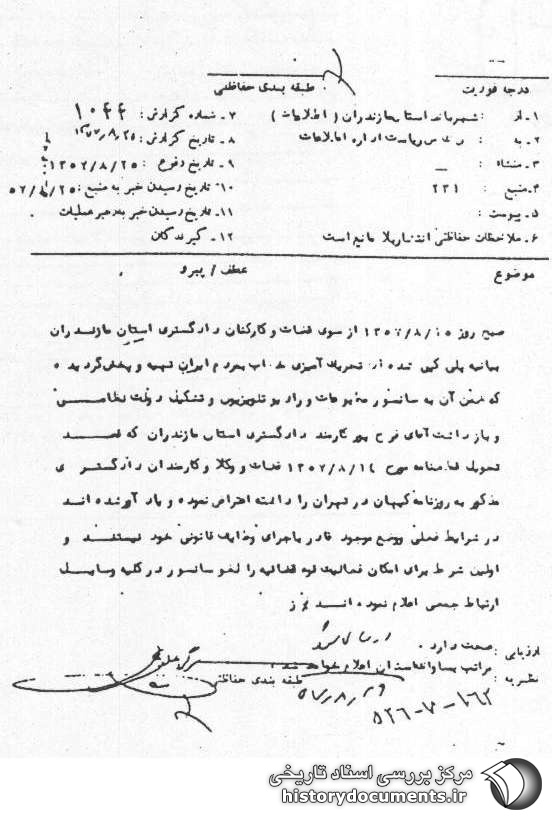 درجه فوریت
طبقه بندی حفاظتی
۱ـ از : شهربانی استان مازندران ( اطلاعات )
۲ـ به : ریاست اداره اطلاعات
۳ـ منشاء : ـ
۴ـ منبع : ۲۳۱
۵ـ پیوست :
۶ـ ملاحظات حفاظتی انتشار بلا مانع است
۷ـ شماره گزارش : ۱۰۴۴
۸ـ تاریخ گزارش : ۱۳۵۷٫۸٫۲۵
۹ـ تاریخ وقوع : ۱۳۵۷/۸/۲۵
۱۰ـ تاریخ رسیدن خبر به منبع : ۵۷/۸/۲۵
۱۱ـ تاریخ رسیدن خبر به رهبر عملیات
۱۲ـ گیرندگان
موضوع
عطف / پیرو
صبح روز ۱۳۵۷/۸/۱۵ از سوی قضات و کارکنان دادگستری استان مازندران
بیانیه پلی کپی شده ای تحریک آمیزی خطاب بمردم ایران تهیه و پخش گردیده
که ضمن آن به سانسور مطبوعات و رادیو تلویزیون و تشکیل دولت نظامی
و بازداشت آقای فرح پور کارمند دادگستری استان مازندران که قصد
تحویل قطعنامه مورخ ۱۳۵۷/۸/۱۴ قضات و وکلا و کارمندان دادگستری
مذکور به روزنامه کیهان در تهران را داشته اعتراض نموده و یادآور شده اند
در شرایط فعلی و وضع موجود قادر باجرای وظایف قانونی خود نیستند و
اولین شرط برای امکان فعالیت قوه قضائیه را لغو سانسور در کلیه وسایل
ارتباط جمعی اعلام نموده اند
ارزیابی : صحت دارد .
نظریه : مراتب بساواک استان اعلام خواهد شد .
طبقه بندی حفاظتی
۵۲۶-۷-۱۶۲
مرکز بررسی اسناد تاریخی
historydocuments.ir